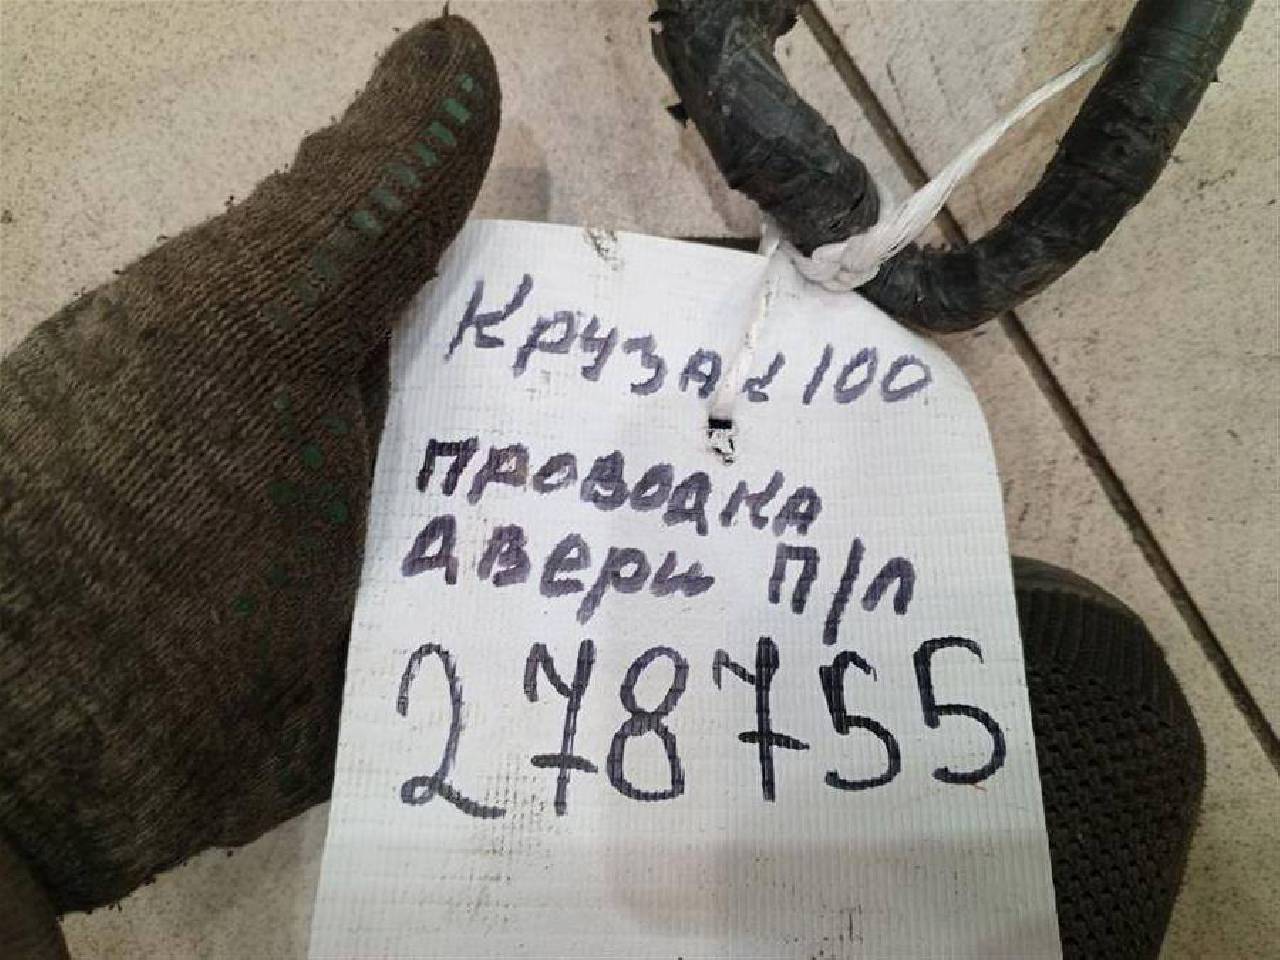 Крузак 100
проводка
двери П/Л
278755